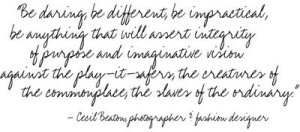 "Be daring, be different, be impractical,
be anything that will assert integrity
of purpose and imaginative vision
against the play-it-safers, the creatures of
the commonplace, the slaves of the ordinary."
- Cecil Beaton, photographer & fashion designer